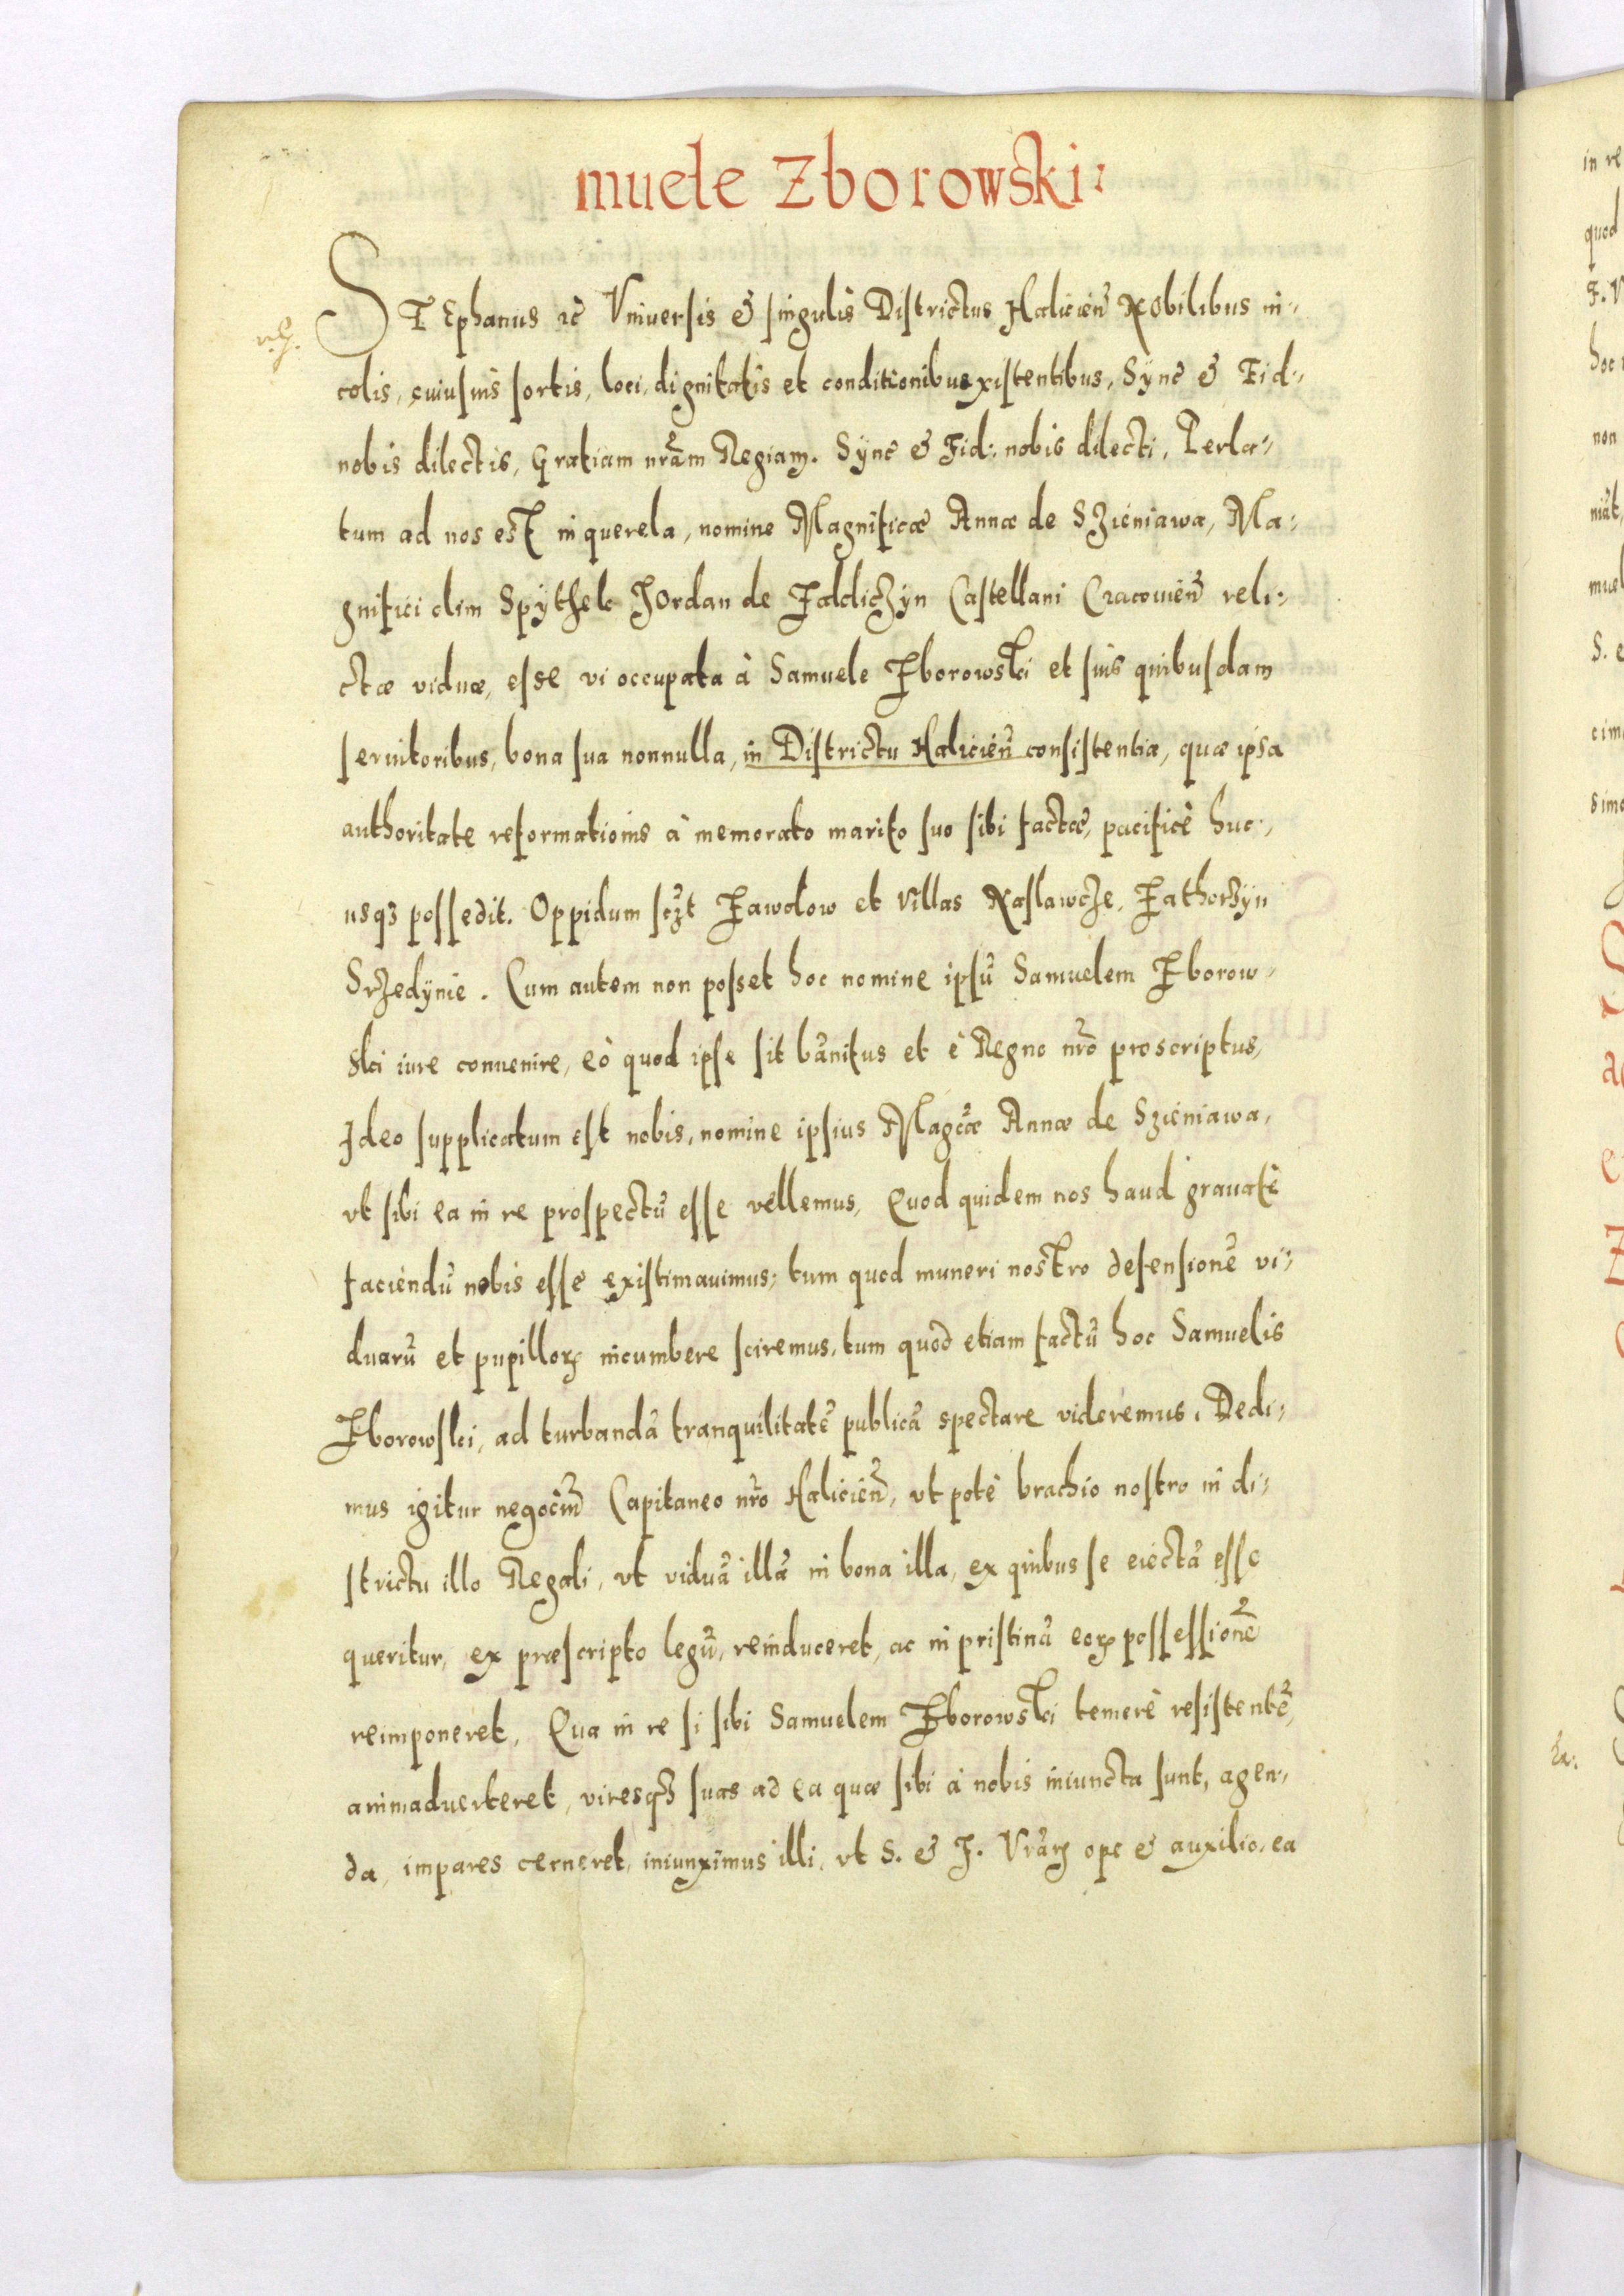 muele Zborowski:
STEphanus rc̃ Vniuersis & singulis Districtus Halicieñ Nobilibus in-
colis, cuiusuis sortis, loci, dignitatis et conditionibus existentibus, Sÿnc̃ & Fid:
nobis dilectis, Gratiam nr̃am Regiam. Sÿnc̃ & Fid: nobis dilecti, Perla-
tum ad nos est in querela, nomine Magnificæ Annæ de Szieniawa, Ma-
gnifici olim Spÿthek Jordan de Zakliczÿn Castellani Cracouieñ reli-
ctæ viduæ, esse vi occupata à Samuele Zborowski et suis quibusdam
seruitoribus, bona sua nonnulla, in Districtu Halicieñ consistentia, quæ ipsa
authoritate reformationis à memorato marito suo sibi factæ, pacificè huc-
usq3 possedit. Oppidum sczt Zawalow et villas Naslawcze, Zathorzÿn
Srzedÿnie. Cum autem non posset hoc nomine ipsũ Samuelem Zborow-
ski iure conuenire, eò quod ipse sit bãnitus et è Regno nr̃o proscriptus,
Ideo supplicatum est nobis, nomine ipsius Magc̃æ Annæ de Szieniawa,
vt sibi ea in re prospectũ esse vellemus, Quod quidem nos haud grauatè
faciendũ nobis esse existimauimus, tum quod muneri nostro defensionẽ vi-
duarũ et pupilloꝝ incumbere sciremus, tum quod etiam factũ hoc Samuelis
Zborowski, ad turbandã tranquilitatẽ publicã spectare videremus, Dedi-
mus igitur negociũ Capitaneo nr̃o Halicieñ, vt potè brachio nostro in di-
strictu illo Regali, vt viduã illã in bona illa, ex quibus se eiectã esse
queritur, ex præscripto legũ, reinduceret, ac in pristinã eoꝝ possessionẽ
reimponeret, Qua in re si sibi Samuelem Zborowski temerè resistentẽ,
animaduerteret, viresq3 suas ad ea quæ sibi à nobis iniuncta sunt, agen-
da, impares cerneret, iniunximus illi, vt S. & F. Vr̃aꝝ ope & auxilio, ea